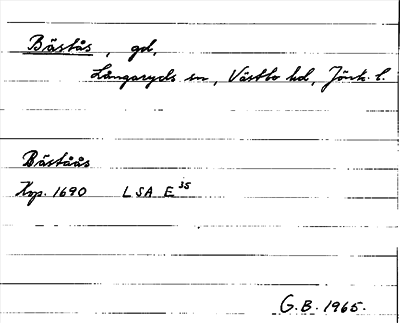 Båstås, gd,
Långaryds sn, Västbo hd, Jönk. l.
Båståås
Kop. 1690 LSA E 35
G.B. 1965.